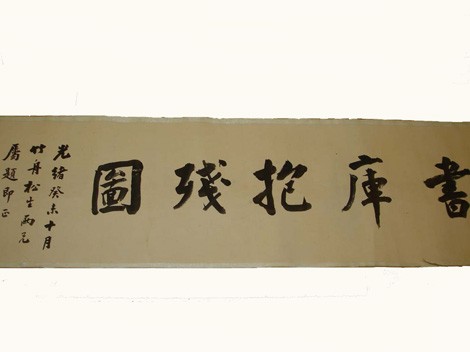 書庫抱殘圖
光緒癸未十月
竹舟松生兩兄
屬題即正